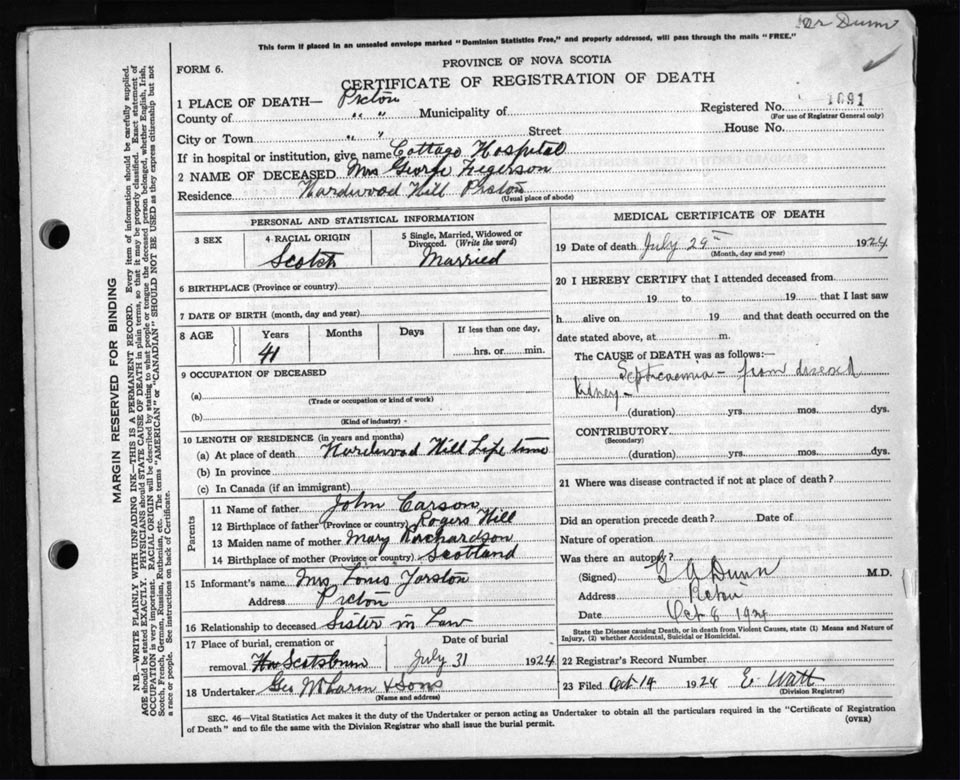 Dr Dunn
This form if placed in an unsealed envelope marked "Dominion Statistics Free," and properly addressed, will pass through the mails "FREE."
PROVINCE OF NOVA SCOTIA
FORM 6.
CERTIFICATE OF REGISTRATION OF DEATH
1 PLACE OF DEATH— Pictou
Registered No. 1091
(For use of Registrar General only)
County of " " Municipality of
City or Town " " Street House No.
If in hospital or institution, give name Cottage Hospital
2 NAME OF DECEASED Mrs George
Residence Hardwood Hill Pictou
(Usual place of abode)
PERSONAL AND STATISTICAL INFORMATION
3 SEX
4 RACIAL ORIGIN
Scotch
5 Single, Married, Widowed or Divorced. (Write the word)
Married
6 BIRTHPLACE (Province or country)
7 DATE OF BIRTH (month, day and year)
8 AGE Years Months Days If less than one day,
41 hrs. or min.
9 OCCUPATION OF DECEASED
(a)
(Trade or occupation or kind of work)
(b)
(Kind of industry)
10 LENGTH OF RESIDENCE (in years and months)
(a) At place of death Hardwood Hill Life time
(b) In province
(c) In Canada (if an immigrant)
Parents
11 Name of father John Carson
12 Birthplace of father (Province or country) Rogers Hill
13 Maiden name of mother Mary
14 Birthplace of mother (Province or country) Scotland
15 Informant's name Mrs Louis Yorston
Address Pictou
16 Relationship to deceased Sister in Law
17 Place of burial, cremation or removal Scotsburn
Date of burial
July 31 1924
18 Undertaker Geo McLaren & Sons
(Name and address)
MEDICAL CERTIFICATE OF DEATH
19 Date of death July 29th 1924
(Month, day and year)
20 I HEREBY CERTIFY that I attended deceased from
19 to 19 that I last saw
h alive on 19 and that death occurred on the
date stated above, at m.
The CAUSE of DEATH was as follows:—
Septicaemia - from diseased
kidney -
(duration) yrs. mos. dys.
CONTRIBUTORY
(Secondary)
(duration) yrs. mos. dys.
21 Where was disease contracted if not at place of death?
Did an operation precede death? Date of
Nature of operation
Was there an autopsy?
(Signed) Dunn M.D.
Address Pictou
Date Oct 8 1924
State the Disease causing Death, or in death from Violent Causes, state (1) Means and Nature of
Injury, (2) whether Accidental, Suicidal or Homicidal.
22 Registrar's Record Number
23 Filed Oct 14 1924 E. Watt
(Division Registrar)
SEC. 46—Vital Statistics Act makes it the duty of the Undertaker or person acting as Undertaker to obtain all the particulars required in the "Certificate of Registration
of Death" and to file the same with the Division Registrar who shall issue the burial permit.
(OVER)
MARGIN RESERVED FOR BINDING
N.B.—WRITE PLAINLY WITH UNFADING INK—THIS IS A PERMANENT RECORD. Every item of information should be carefully supplied.
AGE should be stated EXACTLY. PHYSICIANS should STATE CAUSE OF DEATH in plain terms, so that it may be properly classified. Exact statement of
OCCUPATION is very important. RACIAL ORIGIN will be described by stating to what people or tongue the deceased person belonged, whether English, Irish,
Scotch, French, German, Russian, Ruthenian, etc. The terms "AMERICAN" or "CANADIAN" SHOULD NOT BE USED as they express citizenship but not
a race or people. See instructions on back of Certificate.